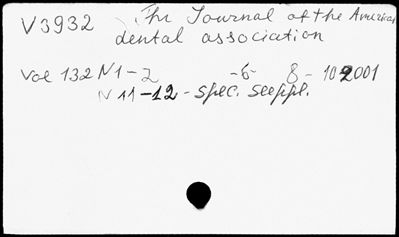 V3932 The Journal of the American
dental association
Vol 132 N1-2 -6- 8- 10 2001
N 11-12 - spec. seeppl.